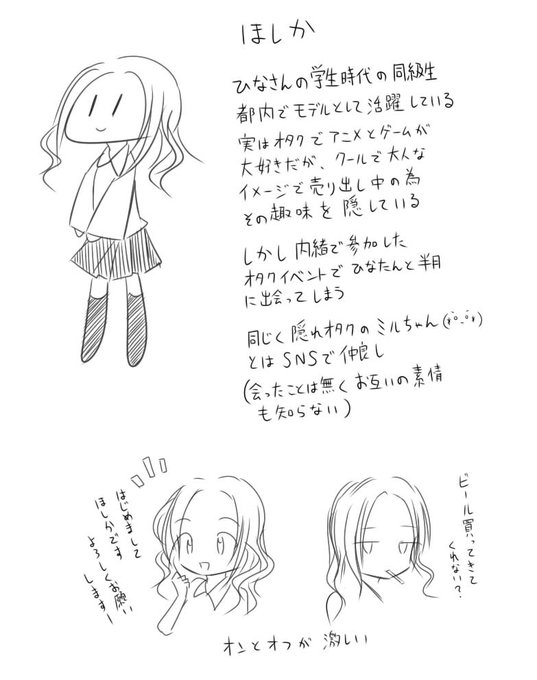 ほしか
ひなさんの学生時代の同級生
都内でモデルとして活躍している
実はオタクでアニメとゲームが
大好きだが、クールで大人な
イメージで売り出し中の為
その趣味を隠している
しかし内緒で参加した
オタクイベントでひなたんと半月
に出会ってしまう
同じく隠れオタクのミルちゃん
とはSNSで仲良し
(会ったことは無くお互いの素情
も知らない)
はじめまして
ほしかです
よろしくお願い
しますー
ビール買ってきて
くれない?
オンとオフが激しい